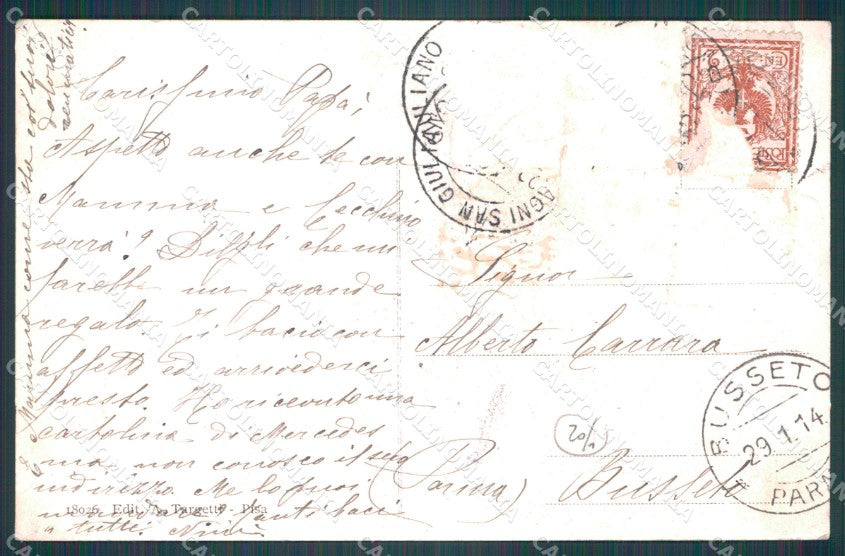 Carissimo Papà,
Aspetto anche te con
Mamma e Cecchino
verrà? Dilgli che mi
farebbe un grande
regalo. Ti bacio con
affetto ed arrivederci
presto. Ho ricevuto una
cartolina di Mercedes
ma non conosco il suo
indirizzo. Me lo puoi
tanti baci
a tutti. Nini
E Mamma come sta coi suoi
dolori
reumatici
18026 Edit. A. Targetti - Pisa
BAGNI SAN GIULIANO
Signor
Alberto Carrara
20/1
(Parma) Busseto
BUSSETO
29.1.14
PARMA
CARTOLINOMANIA